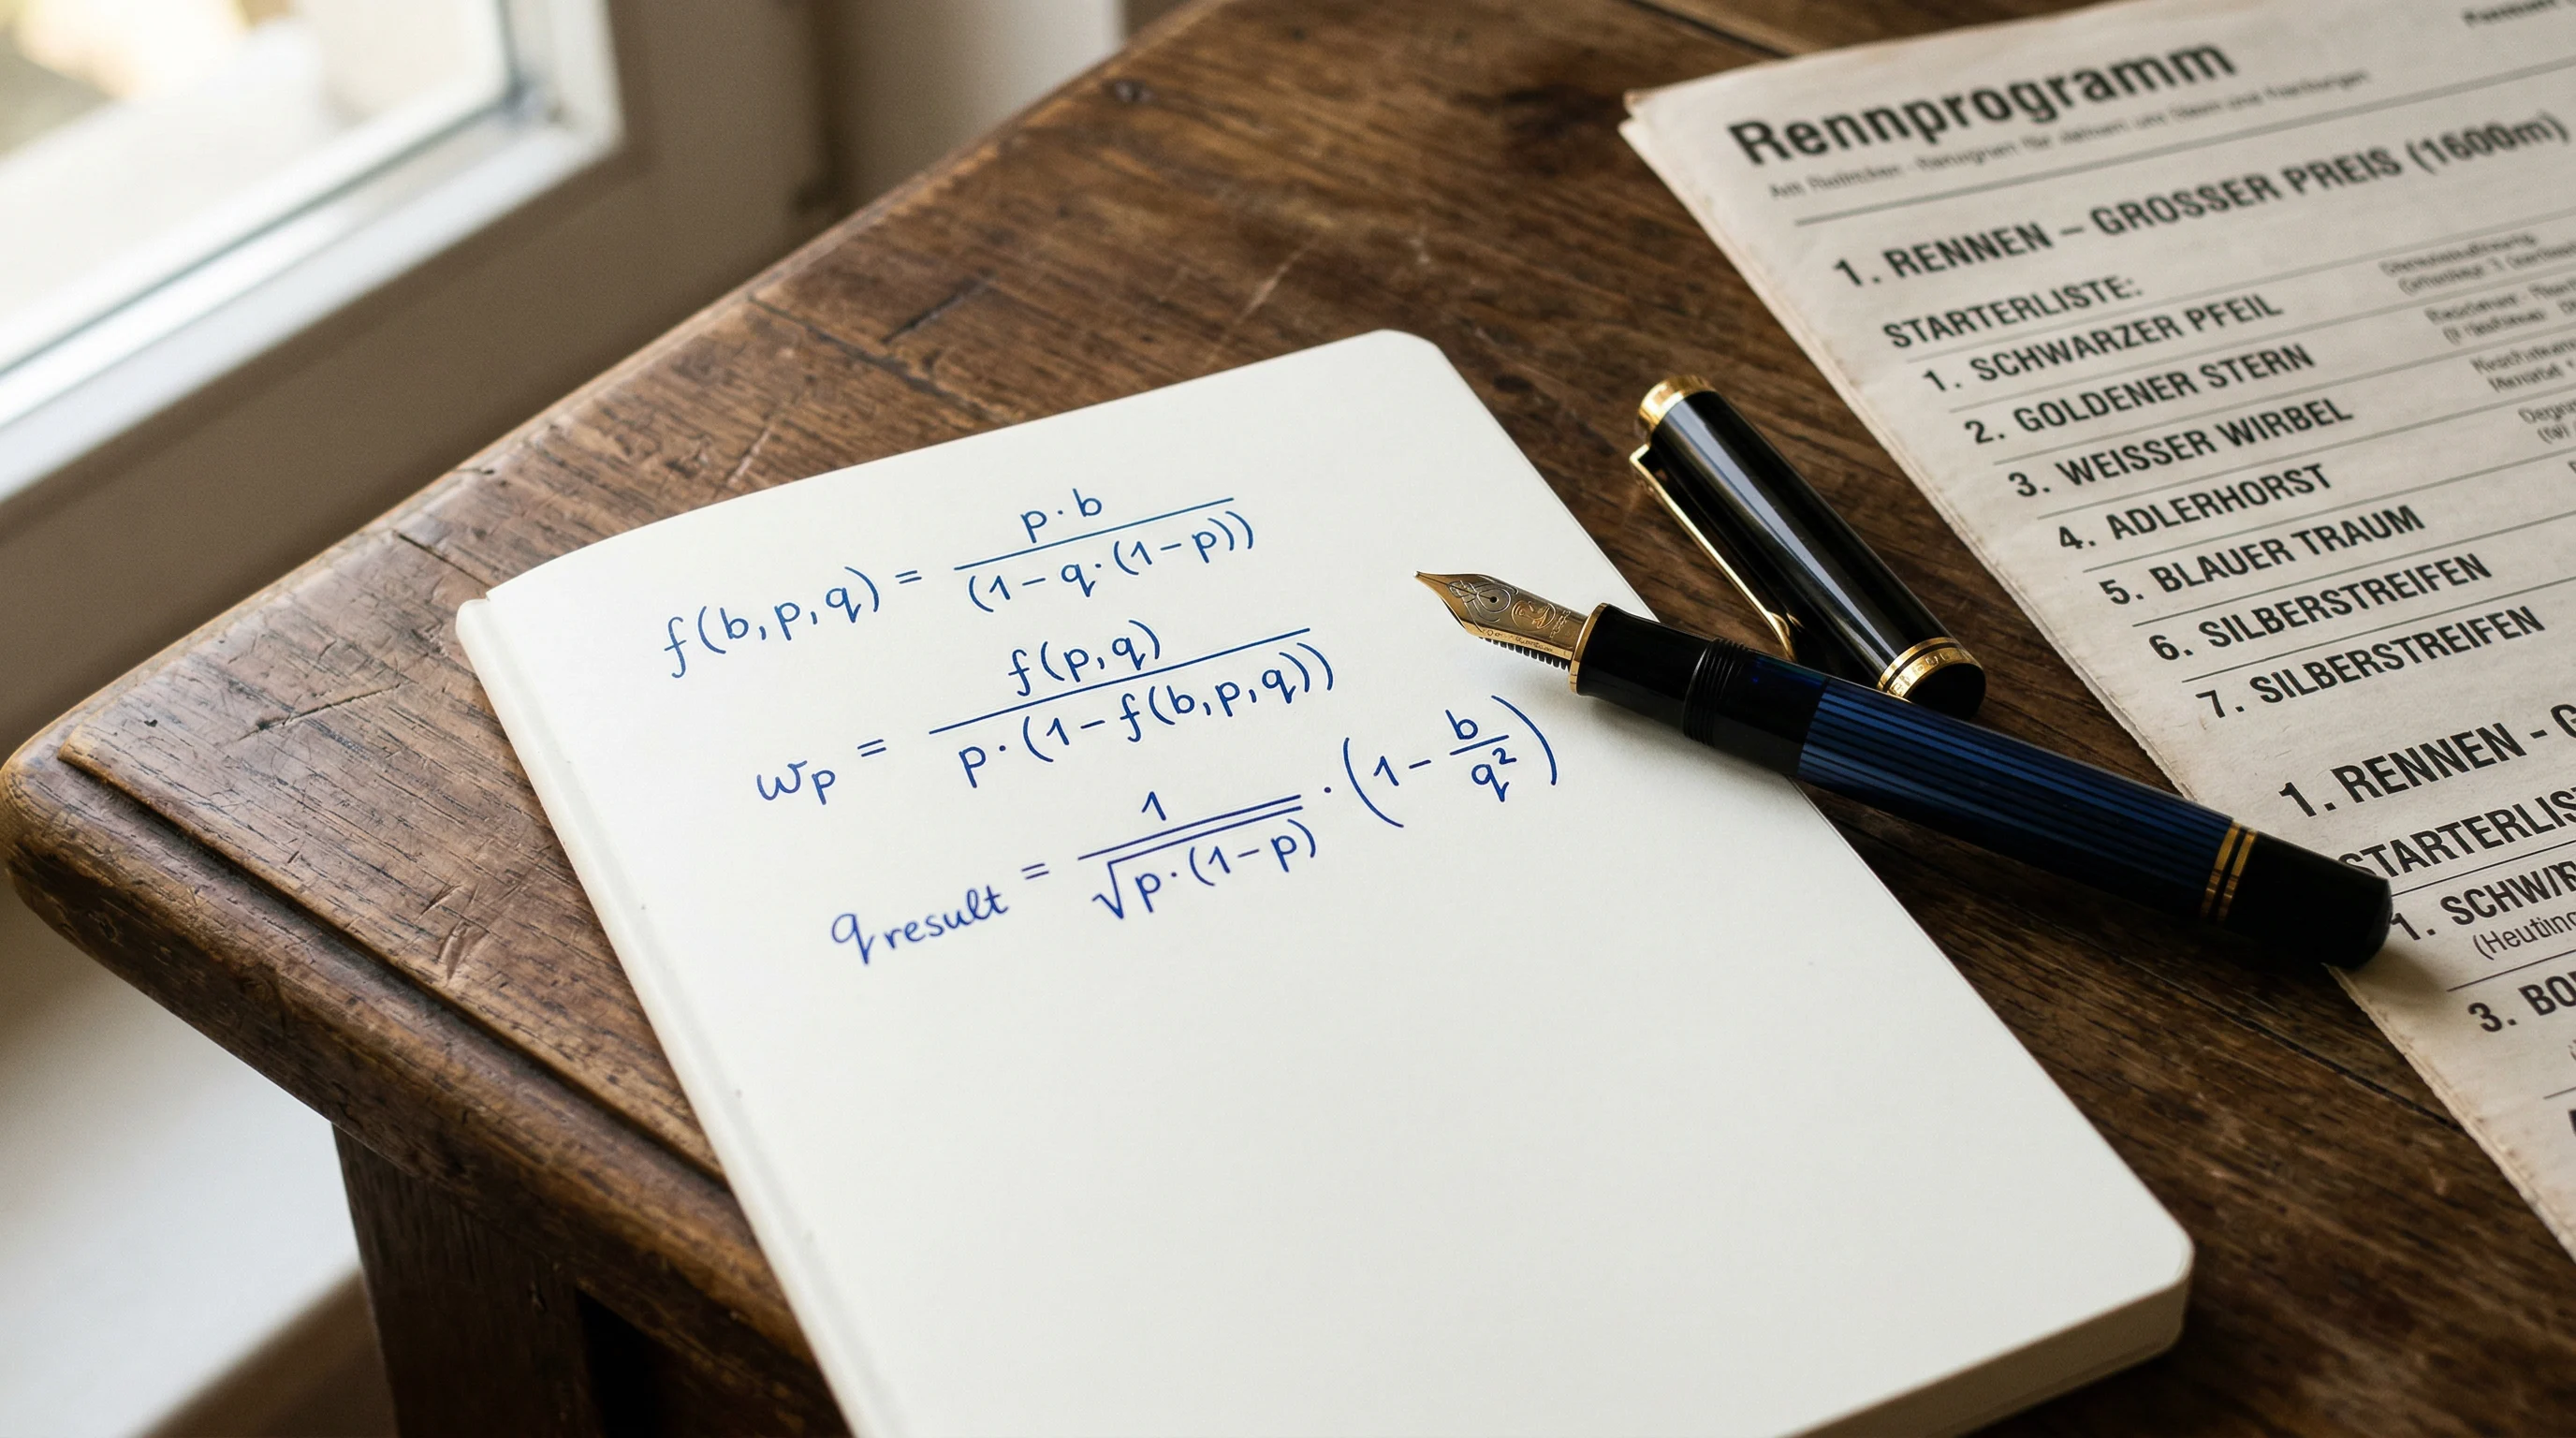 f(b,p,q) = p·b / (1-q·(1-p))
w_p = f(p,q) / p·(1-f(b,p,q))
q_result = 1 / √p·(1-p) · (1 - b/q²)
Rennprogramm
1. RENNEN – GROSSER PREIS (1600m)
STARTERLISTE:
1. SCHWARZER PFEIL
2. GOLDENER STERN
3. WEISSER WIRBEL
4. ADLERHORST
5. BLAUER TRAUM
6. SILBERSTREIFEN
7. SILBERSTREIFEN
1. RENNEN -
STARTERLIS
1. SCHWIR
(Heuting
3. BO